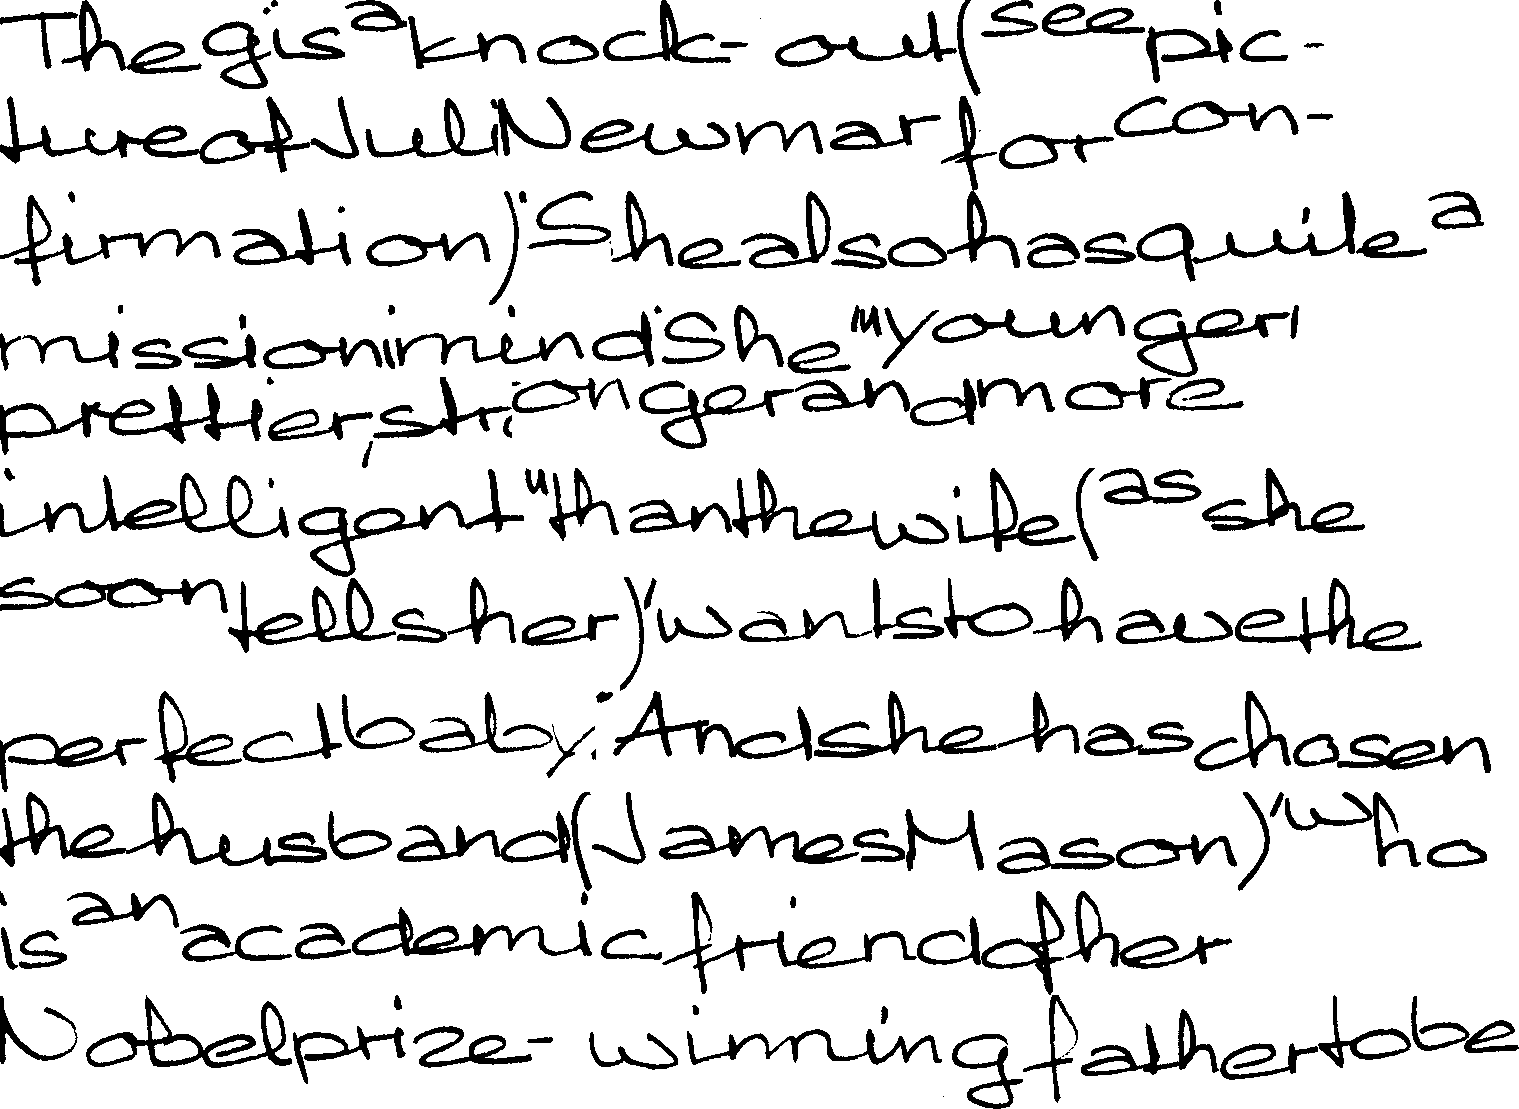 The g is a knock-out (see pic-
ture of Juli Newmar for con-
firmation). She also has quite a
mission in mind. She "younger,
prettier, stronger and more
intelligent" than the wife (as she
soon tells her), wants to have the
perfect baby. And she has chosen
the husband (James Mason), who
is an academic friend of her
Nobel prize-winning father to be